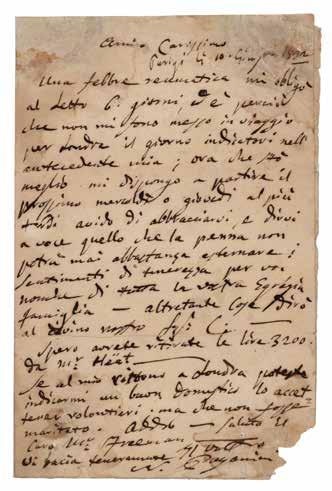 Amico Carissimo
Parigi li 10 Giugno
Una febbre reumatica mi obligò
al letto 6 giorni, ed è perciò
che non mi sono messo in viaggio
per Londra il giorno indicatovi nell'
antecedente mia; ora che stò
meglio mi dispongo a partire il
prossimo mercoldì o giovedì al più
tardi avido di abbracciarvi e dirvi
a voce quello che la penna non
potrà mai abbastanza esternare i
sentimenti di tenerezza per voi
nonchè di tutta la vostra Egregia
famiglia — altretante cose dirò
al divino nostro
Spero avrete ritirate le lire 3200.
da Mr.
Se al mio ritorno a Londra poteste
indicarmi un buon domestico lo accet-
terei volontieri. ma che non fosse
maritato. Addio — Saluto il
Caro Mr. Freeman
Vi bacia teneramente il vostro
N. Paganini